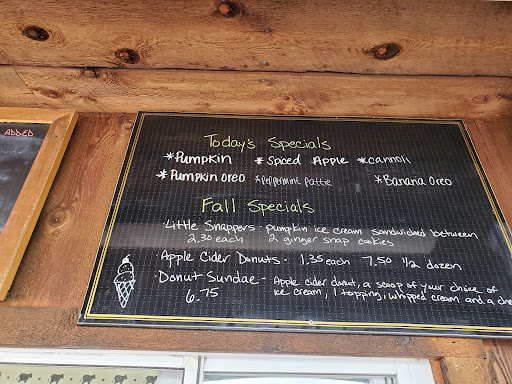 ADDED
Today's Specials
*Pumpkin *Spiced Apple *cannoli
*Pumpkin oreo *Peppermint Pattie *Banana Oreo
Fall Specials
·Little Snappers - pumpkin ice cream sandwiched between
2.30 each 2 ginger snap cookies
·Apple Cider Donuts - 1.35 each 7.50 1/2 dozen
·Donut Sundae - Apple cider donut, a scoop of your choice of
6.75 ice cream, 1 topping, whipped cream and a che